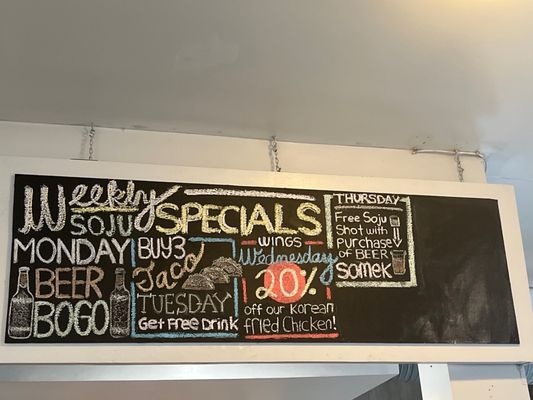 Weekly SPECIALS
SOJU
MONDAY
BEER
BOGO
BUY 3
Taco
TUESDAY
Get Free Drink
WINGS
Wednesday
20%
off our Korean
fried Chicken!
THURSDAY
Free Soju
Shot with
Purchase
of BEER
Somek